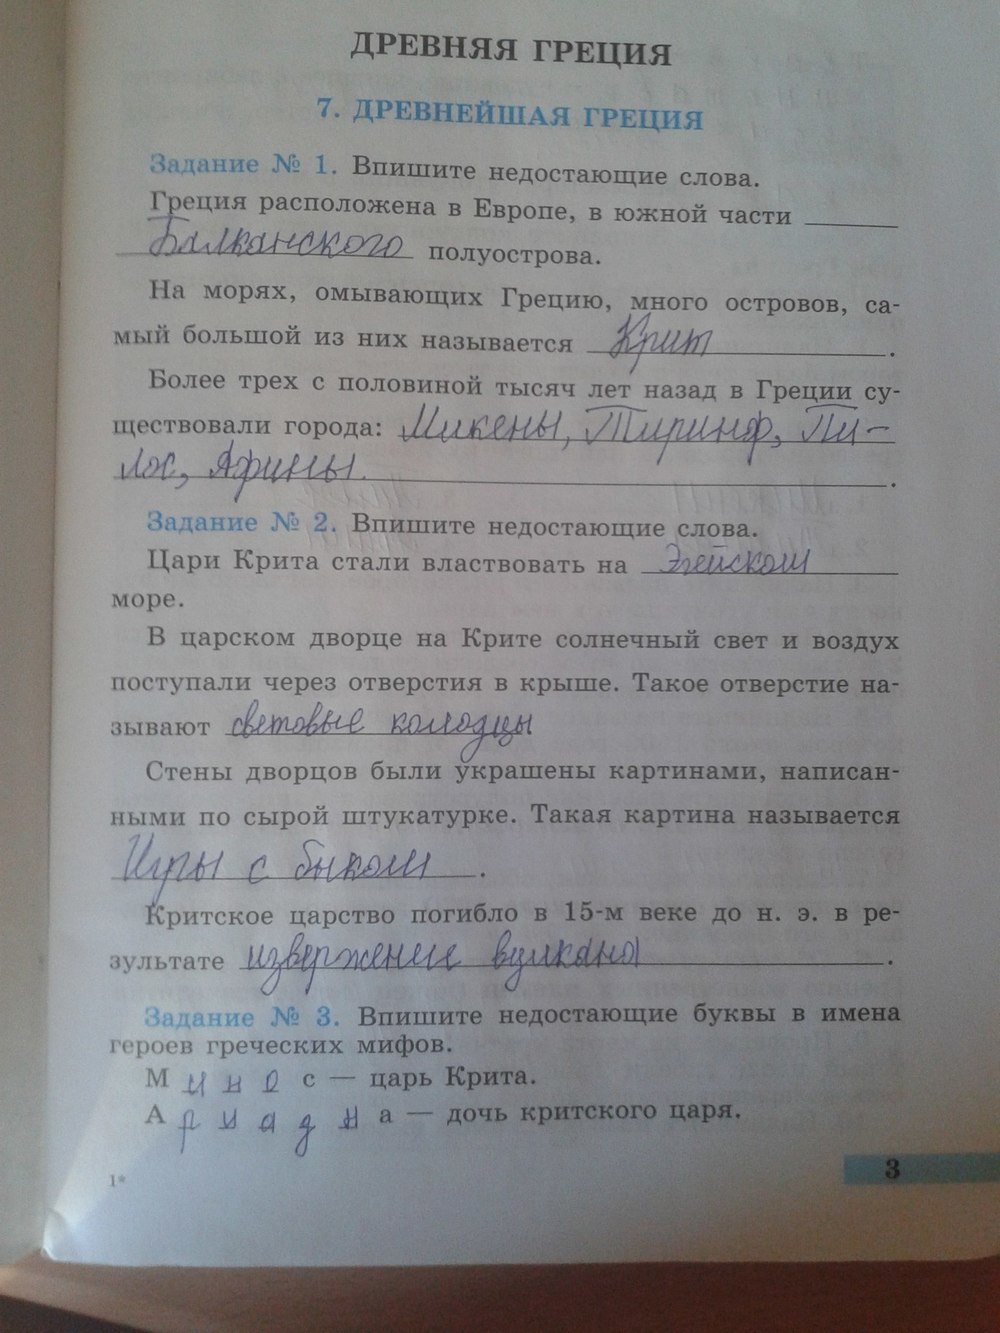 ДРЕВНЯЯ ГРЕЦИЯ
7. ДРЕВНЕЙШАЯ ГРЕЦИЯ
Задание № 1. Впишите недостающие слова.
Греция расположена в Европе, в южной части
Балканского полуострова.
На морях, омывающих Грецию, много островов, са-
мый большой из них называется Крит.
Более трех с половиной тысяч лет назад в Греции су-
ществовали города: Микены, Тиринф, Пи-
лос, Афины.
Задание № 2. Впишите недостающие слова.
Цари Крита стали властвовать на Эгейском
море.
В царском дворце на Крите солнечный свет и воздух
поступали через отверстия в крыше. Такое отверстие на-
зывают световые колодцы
Стены дворцов были украшены картинами, написан-
ными по сырой штукатурке. Такая картина называется
Игры с быком.
Критское царство погибло в 15-м веке до н. э. в ре-
зультате извержение вулкана.
Задание № 3. Впишите недостающие буквы в имена
героев греческих мифов.
М и н о с — царь Крита.
А р и а д н а — дочь критского царя.
1*
3